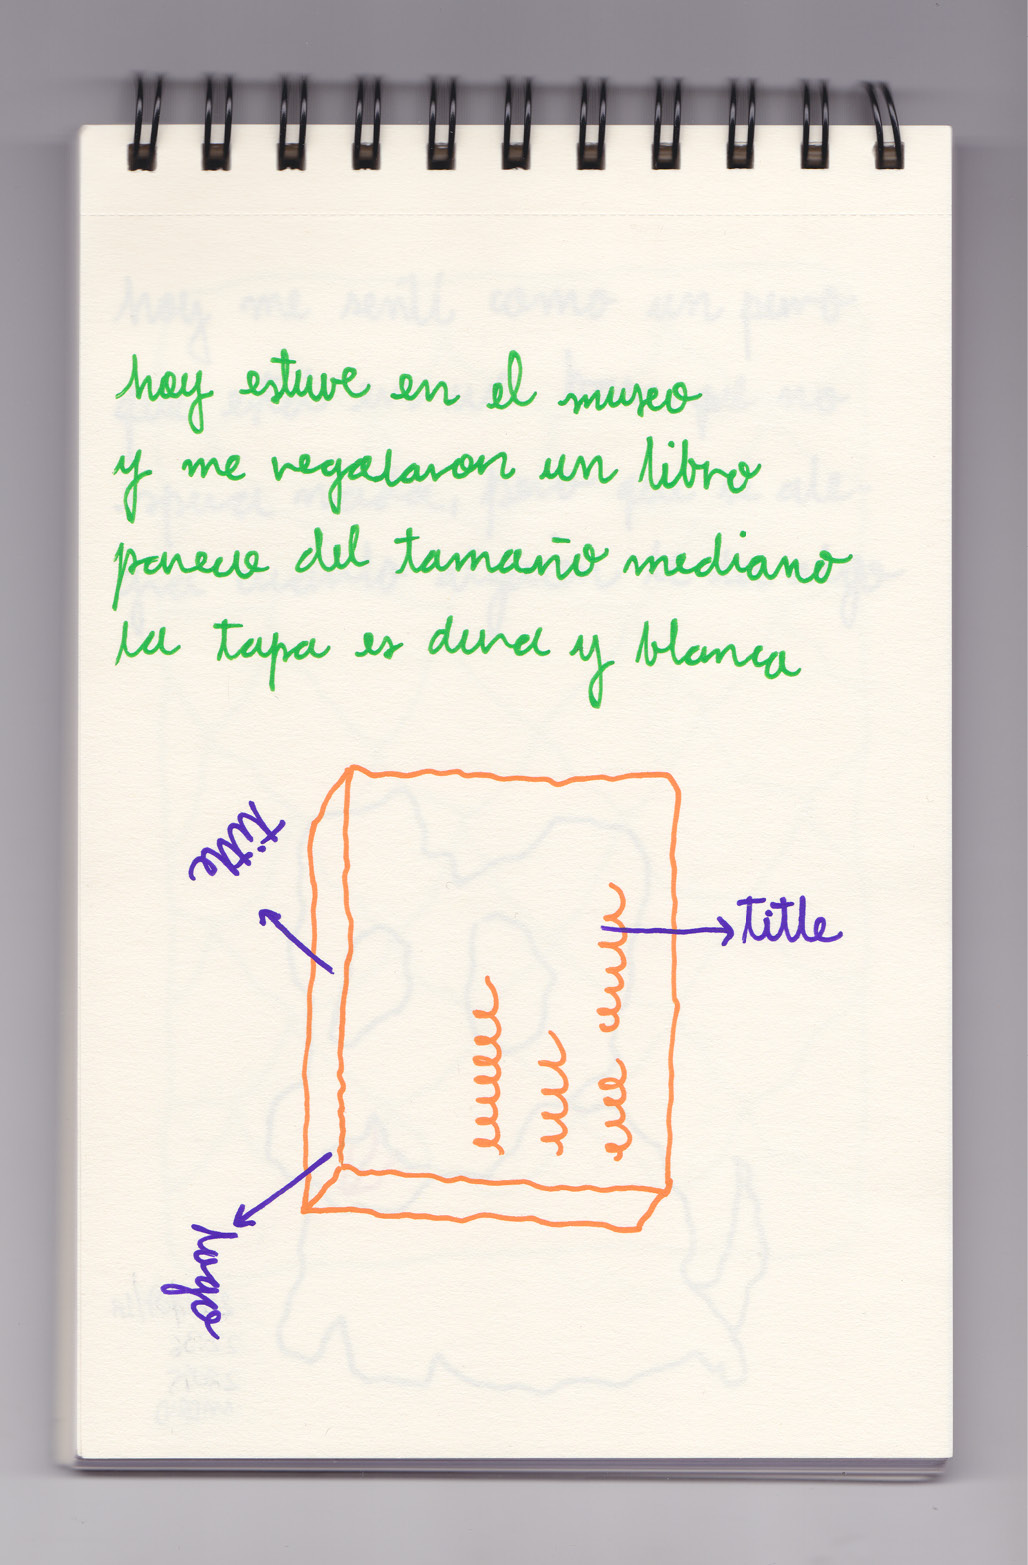 hoy estuve en el museo
y me regalaron un libro
parece del tamaño mediano
la tapa es dura y blanca
title
title
logo